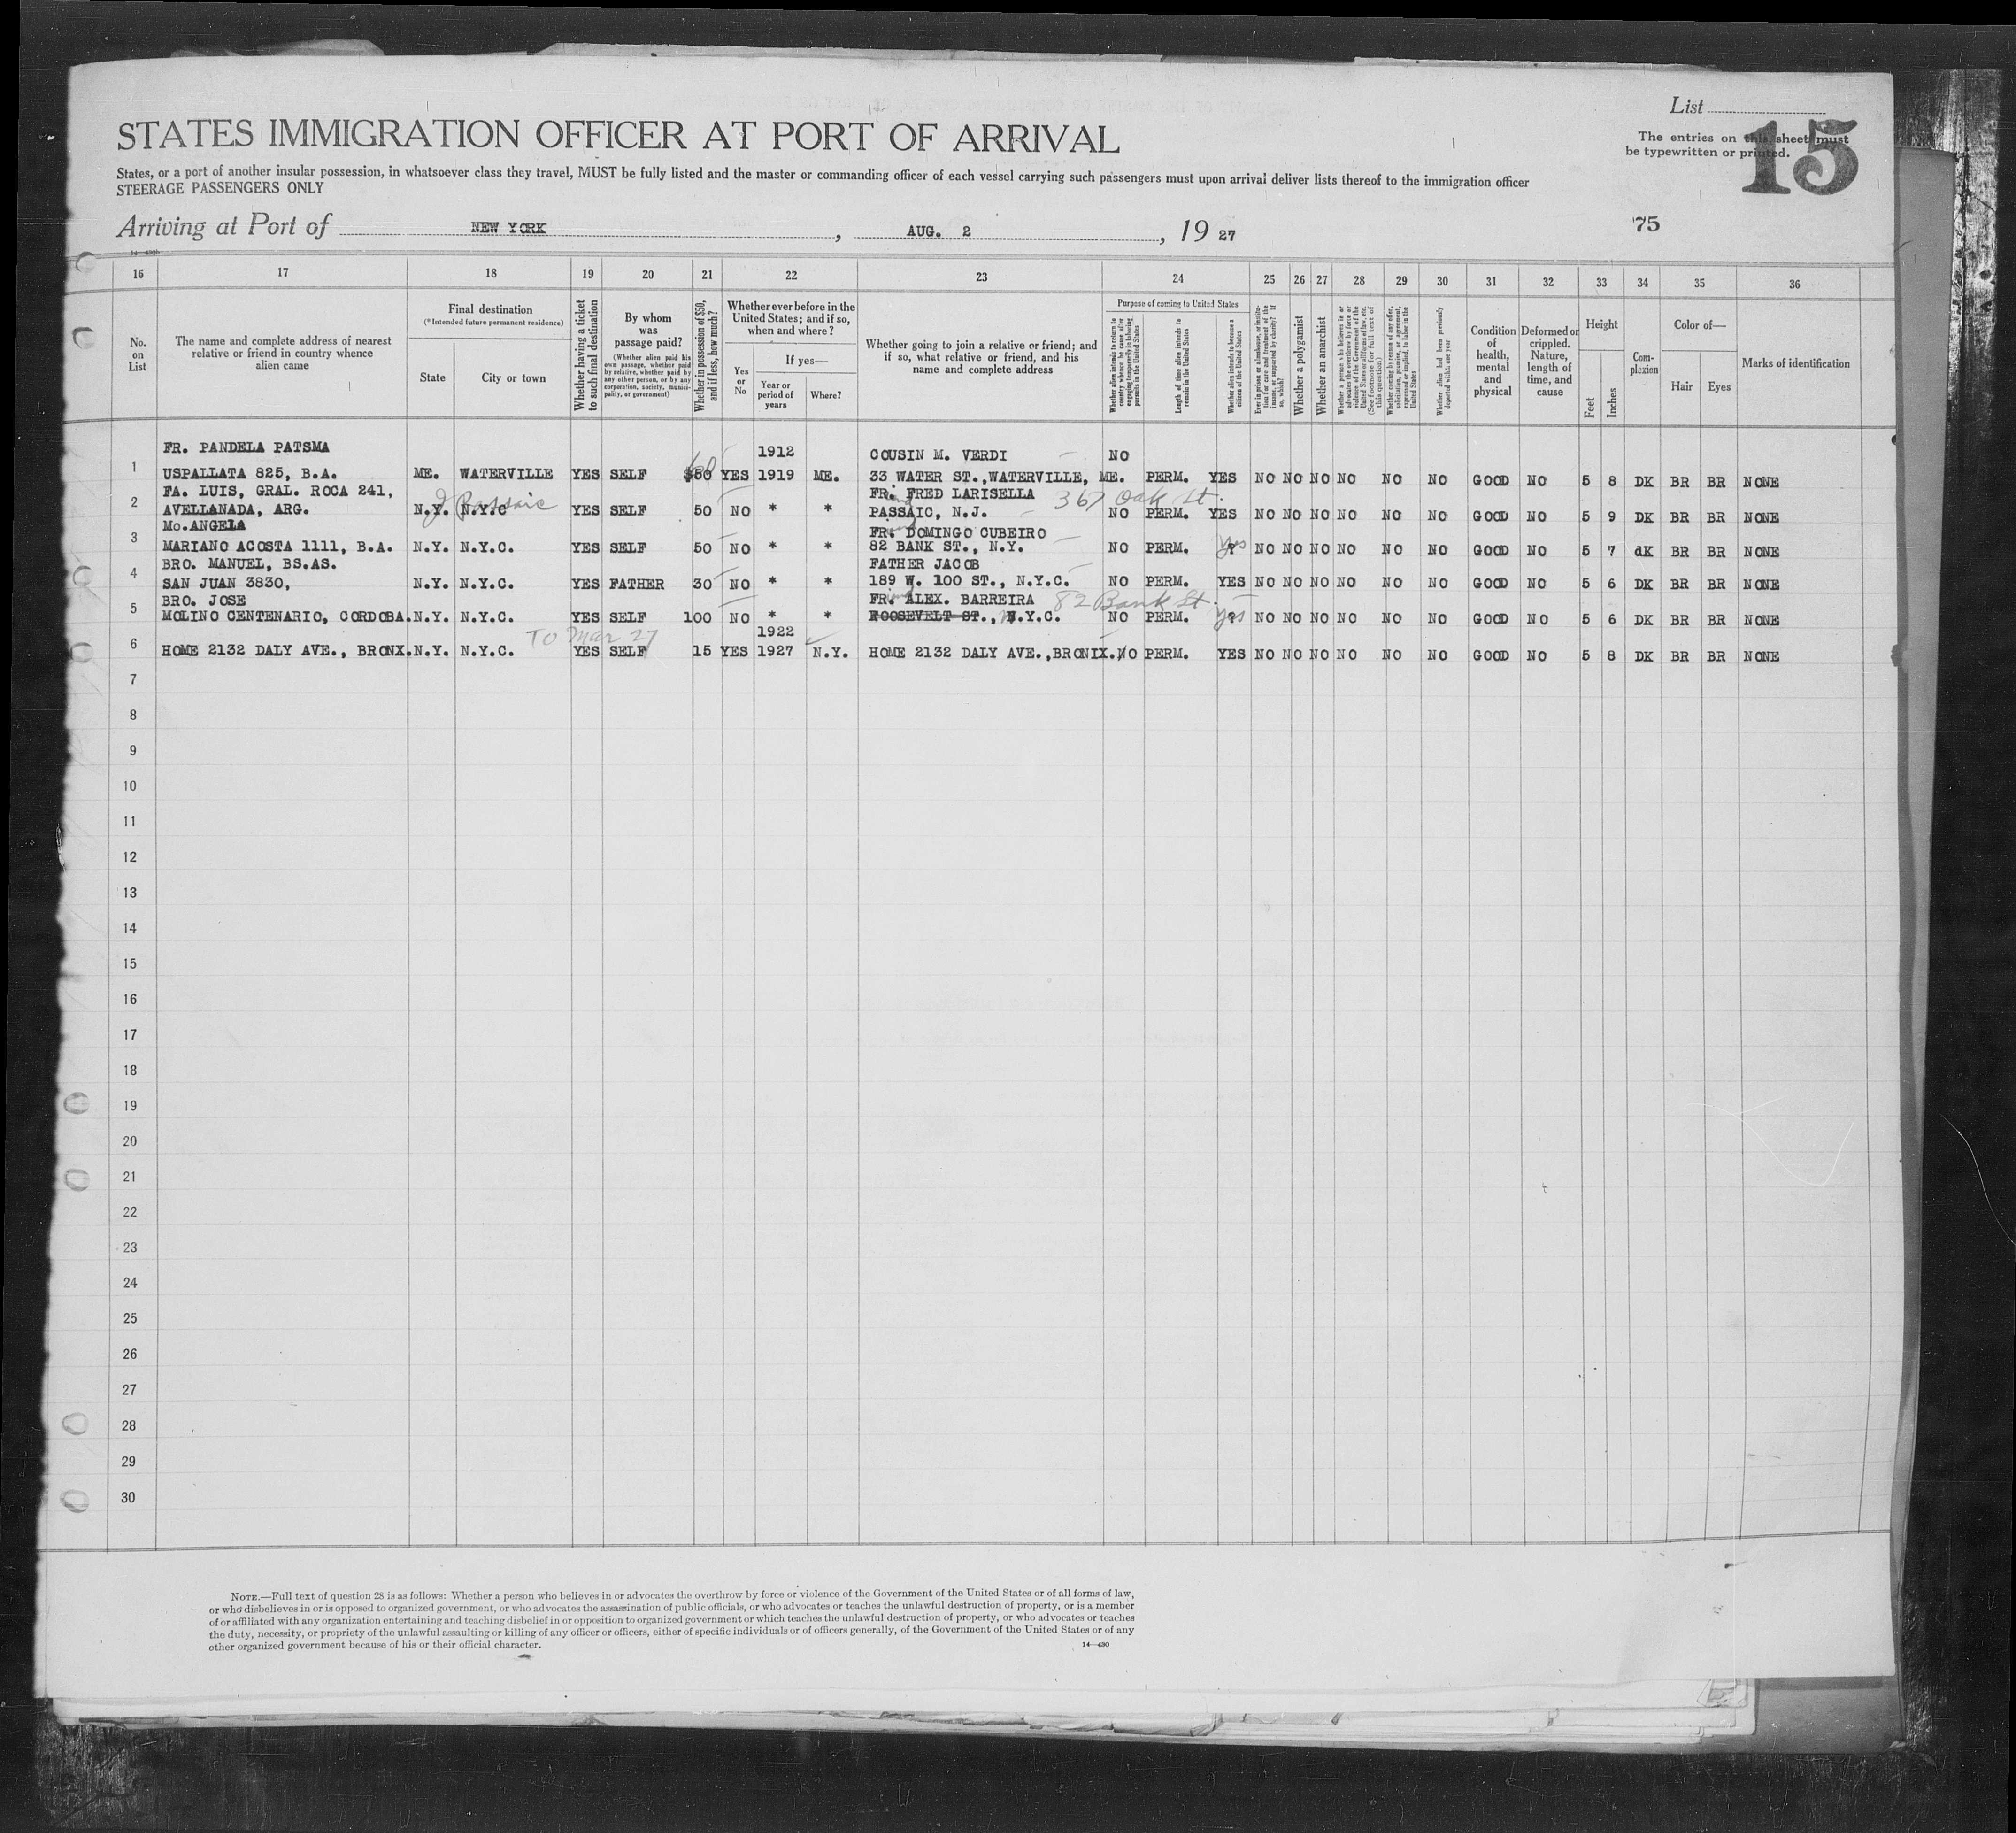 List
15
The entries on this sheet must
be typewritten or printed.
STATES IMMIGRATION OFFICER AT PORT OF ARRIVAL
States, or a port of another insular possession, in whatsoever class they travel, MUST be fully listed and the master or commanding officer of each vessel carrying such passengers must upon arrival deliver lists thereof to the immigration officer
STEERAGE PASSENGERS ONLY
Arriving at Port of NEW YORK, AUG. 2, 19 27
75
14—430
16 17 18 19 20 21 22 23 24 25 26 27 28 29 30 31 32 33 34 35 36
No. on List
The name and complete address of nearest relative or friend in country whence alien came
Final destination
(*Intended future permanent residence)
State
City or town
Whether having a ticket to such final destination
By whom was passage paid?
(Whether alien paid his own passage, whether paid by relative, whether paid by any other person, or by any corporation, society, municipality, or government)
Whether in possession of $50, and if less, how much?
Whether ever before in the United States; and if so, when and where?
Yes or No
If yes—
Year or period of years
Where?
Whether going to join a relative or friend; and if so, what relative or friend, and his name and complete address
Purpose of coming to United States
Whether alien intends to return to country whence he came after engaging temporarily in laboring pursuits in the United States
Length of time alien intends to remain in the United States
Whether alien intends to become a citizen of the United States
Ever in prison or almshouse, or institution for care and treatment of the insane, or supported by charity? If so, which?
Whether a polygamist
Whether an anarchist
Whether a person who believes in or advocates the overthrow by force or violence of the Government of the United States or all forms of law, etc. (See footnote for full text of this question)
Whether coming by reason of any offer, solicitation, promise, or agreement, expressed or implied, to labor in the United States
Whether alien had been previously deported within one year
Condition of health, mental and physical
Deformed or crippled. Nature, length of time, and cause
Height
Feet
Inches
Complexion
Color of—
Hair
Eyes
Marks of identification
FR. PANDELA PATSMA 1912 COUSIN M. VERDI NO
1 USPALLATA 825, B.A. ME. WATERVILLE YES SELF $50 YES 1919 ME. 33 WATER ST.,WATERVILLE, ME. PERM. YES NO NO NO NO NO NO GOOD NO 5 8 DK BR BR NONE
FA. LUIS, GRAL. ROCA 241, FR. FRED LARISELLA 367 Oak St.
2 AVELLANADA, ARG. N.Y. N.Y.C J Passaic YES SELF 50 NO * * PASSAIC, N.J. NO PERM. YES NO NO NO NO NO NO GOOD NO 5 9 DK BR BR NONE
Mo.ANGELA FR. DOMINGO CUBEIRO
3 MARIANO ACOSTA 1111, B.A. N.Y. N.Y.C. YES SELF 50 NO * * 82 BANK ST., N.Y. NO PERM. yes NO NO NO NO NO NO GOOD NO 5 7 dK BR BR NONE
BRO. MANUEL, BS.AS. FATHER JACOB
4 SAN JUAN 3830, N.Y. N.Y.C. YES FATHER 30 NO * * 189 W. 100 ST., N.Y.C. NO PERM. YES NO NO NO NO NO NO GOOD NO 5 6 DK BR BR NONE
BRO. JOSE FR. ALEX. BARREIRA 82 Bank St.
5 MOLINO CENTENARIO, CORDOBA. N.Y. N.Y.C. YES SELF 100 NO * * ROOSEVELT ST., N.Y.C. NO PERM. yes NO NO NO NO NO NO GOOD NO 5 6 DK BR BR NONE
To Mar 27 1922
6 HOME 2132 DALY AVE., BRONX. N.Y. N.Y.C. YES SELF 15 YES 1927 N.Y. HOME 2132 DALY AVE.,BRONIX. NO PERM. YES NO NO NO NO NO NO GOOD NO 5 8 DK BR BR NONE
7
8
9
10
11
12
13
14
15
16
17
18
19
20
21
22
23
24
25
26
27
28
29
30
NOTE.—Full text of question 28 is as follows: Whether a person who believes in or advocates the overthrow by force or violence of the Government of the United States or of all forms of law,
or who disbelieves in or is opposed to organized government, or who advocates the assassination of public officials, or who advocates or teaches the unlawful destruction of property, or is a member
of or affiliated with any organization entertaining and teaching disbelief in or opposition to organized government or which teaches the unlawful destruction of property, or who advocates or teaches
the duty, necessity, or propriety of the unlawful assaulting or killing of any officer or officers, either of specific individuals or of officers generally, of the Government of the United States or of any
other organized government because of his or their official character.
14—430